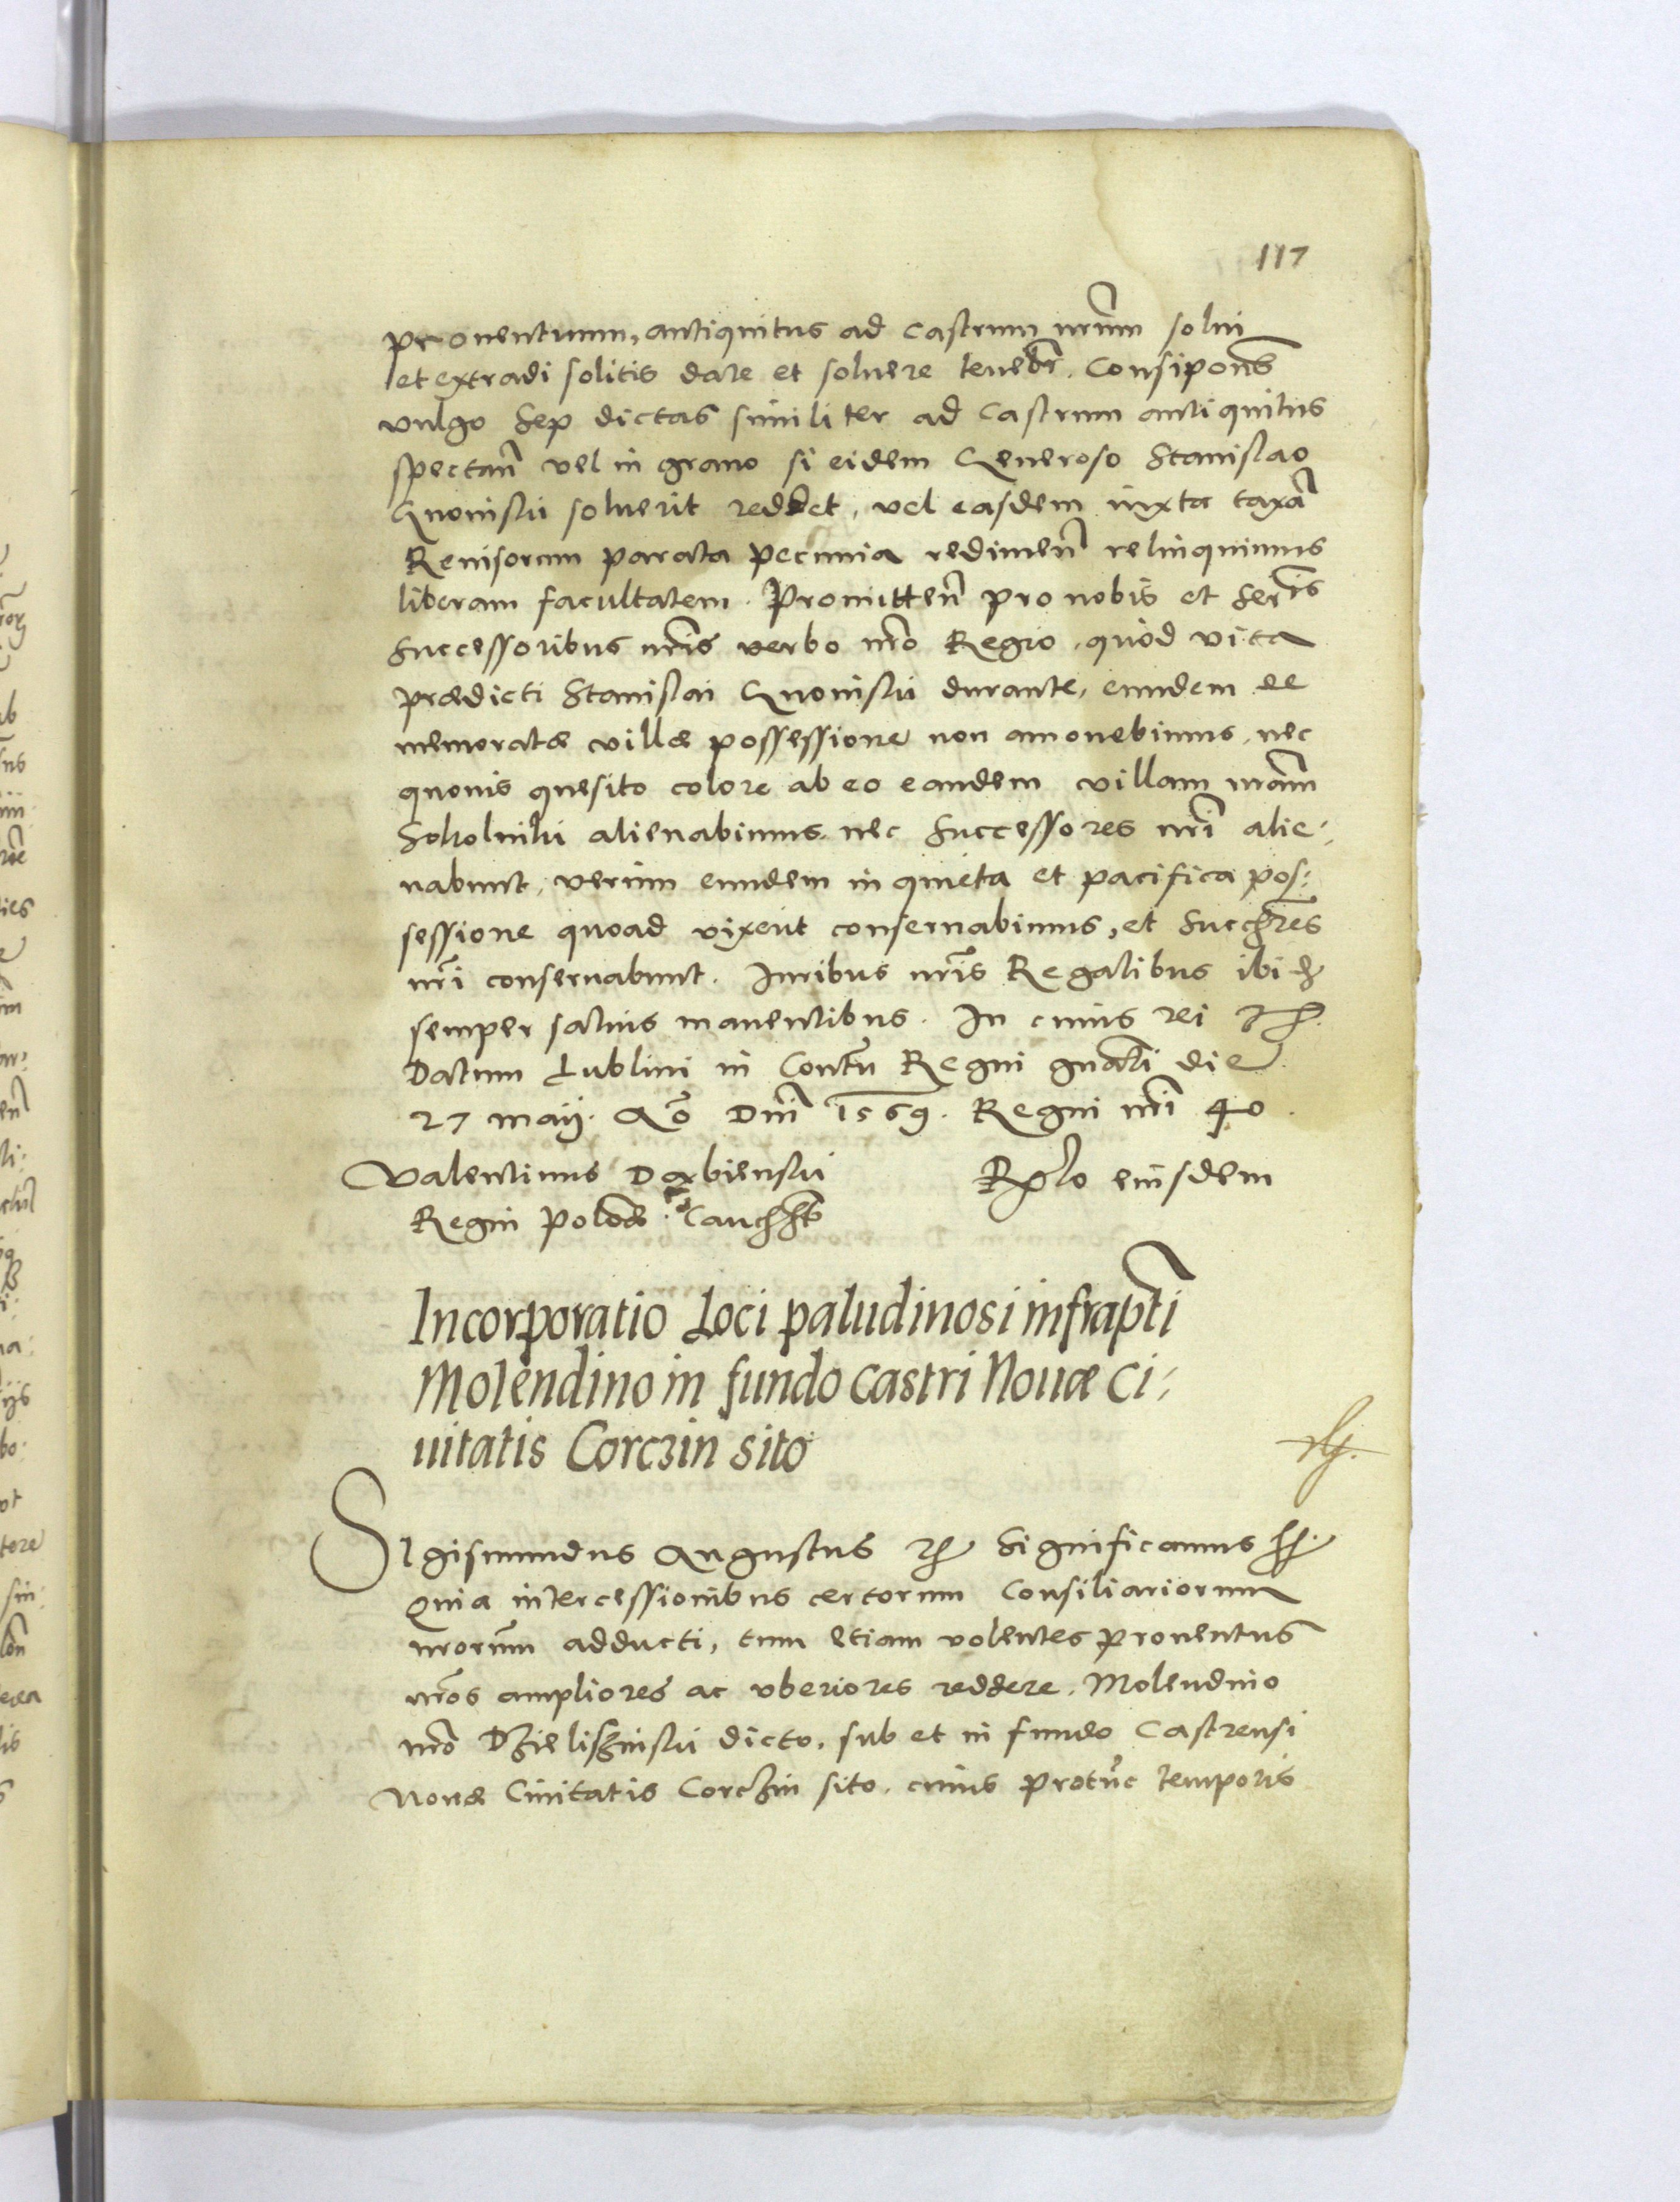 117
prouentuum, antiquitus ad Castrum nr̃um solui
et extradi solitis dare et soluere tenebr̃. Consipoñs
vulgo Sep dictas similiter ad Castrum antiquitus
spectañ vel in grano si eidem Generoso Stanislao
Gnoinski soluerit reddet, vel easdem iuxta taxã
Reuisorum parata pecunia redimeñ relinquimus
liberam facultatem. Promitteñ pro nobis et Ser̃is
Successoribus nr̃is verbo nr̃o Regio, quòd vita
prædicti Stanislai Gnoinski durante, eundem ee
memoratæ villæ possessione non amouebimus, nec
quouis quesito colore ab eo eandem villam nr̃am
Sokolniki alienabimus, nec Successores nr̃i alie-
nabunt, verùm eundem in quieta et pacifica pos-
sessione quoad vixerit conseruabimus, et Succr̃es
nr̃i conseruabunt. Iuribus nr̃is Regalibus ibi
semper saluis manentibus. In cuius rei
Datum Lublini in Contũ Regni gñali die
27 maij. Aõ Dñi 1569. Regni nr̃i 40.
Valentinus Dębienski
Regni Polõæ Canc
R̃lo eiusdem
Incorporatio Loci paludinosi infrapt̃i
Molendino in fundo Castri Nouæ Ci-
uitatis Corczin sito
Sigismundus Augustus Significamus
Quia intercessionibus certorum Consiliariorum
nr̃orum adducti, tum etiam volentes prouentus
nr̃os ampliores ac vberiores reddere, Molendino
nr̃o Dzielisznski dicto, sub et in fundo Castrensi
Nouæ Ciuitatis Corczin sito, cuius protũc temporis